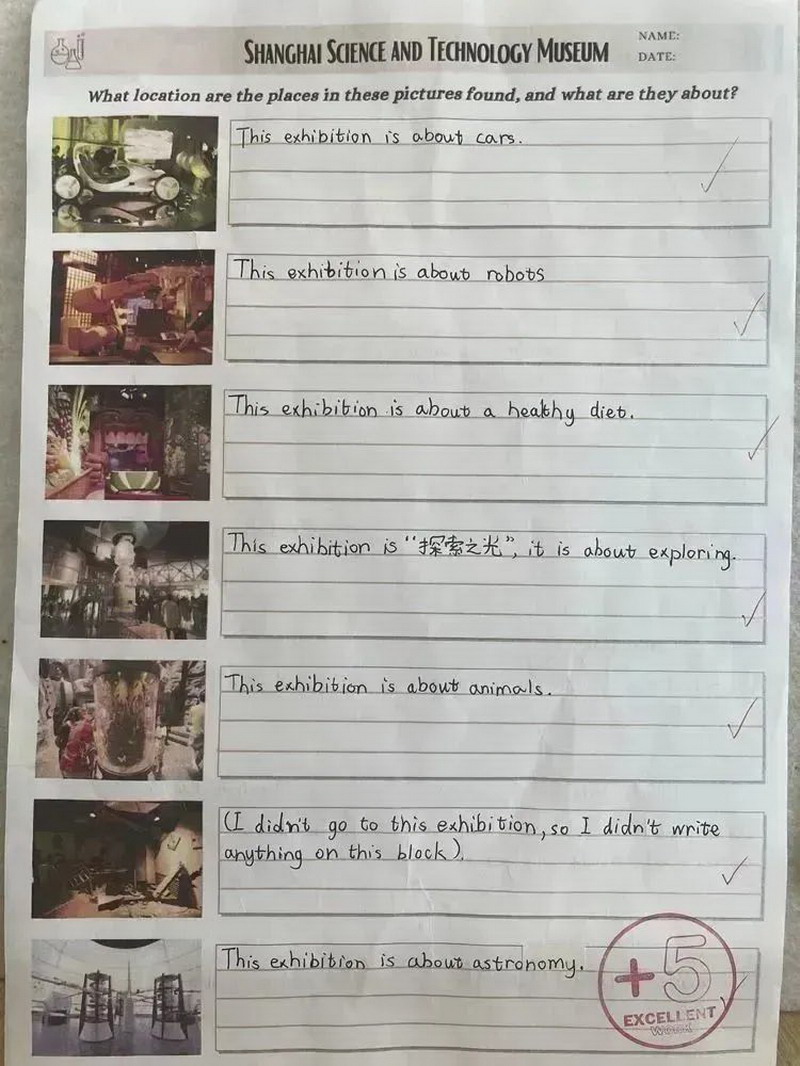 SHANGHAI SCIENCE AND TECHNOLOGY MUSEUM
NAME:
DATE:
What location are the places in these pictures found, and what are they about?
This exhibition is about cars.
This exhibition is about robots
This exhibition is about a healthy diet.
This exhibition is “探索之光”, it is about exploring.
This exhibition is about animals.
(I didn't go to this exhibition, so I didn't write
anything on this block).
This exhibition is about astronomy.
+5
EXCELLENT